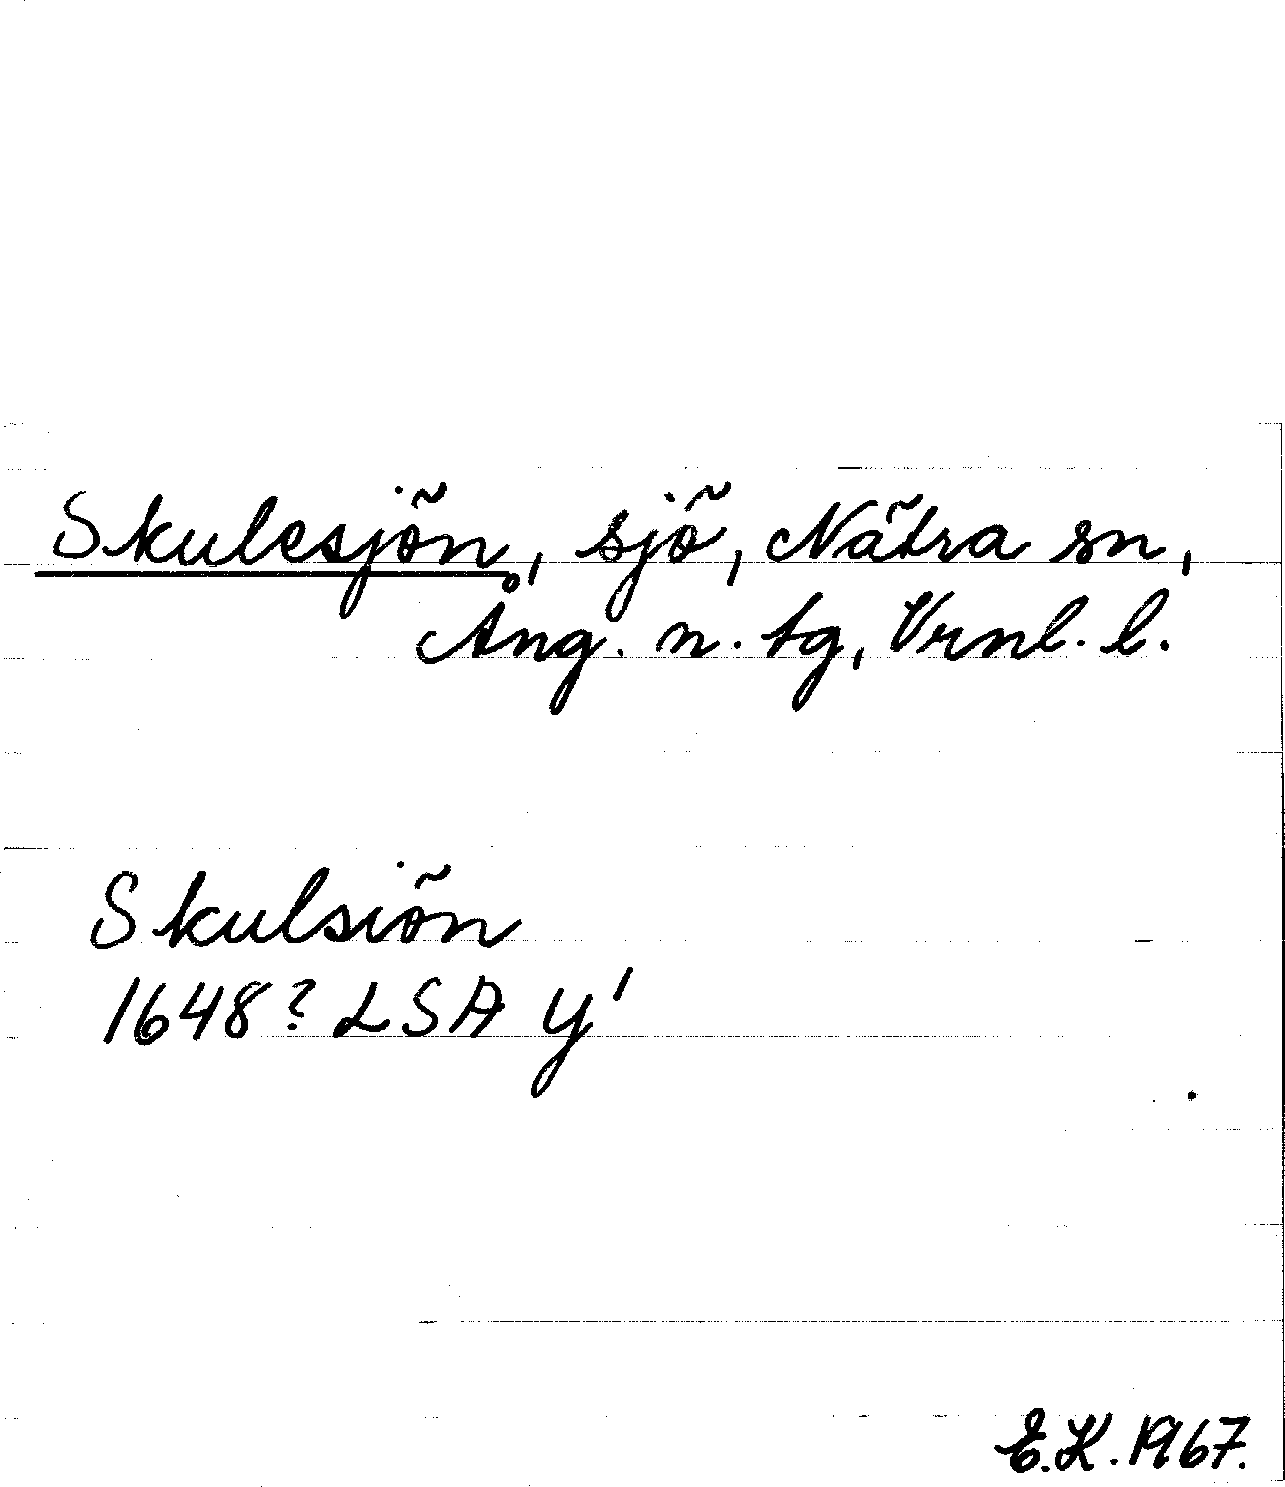 Skulesjön, sjö, Nätra sn,
Ång. n. tg, Vrnl. l.
Skulsiön
1648? LSA Y¹
E.K. 1967.